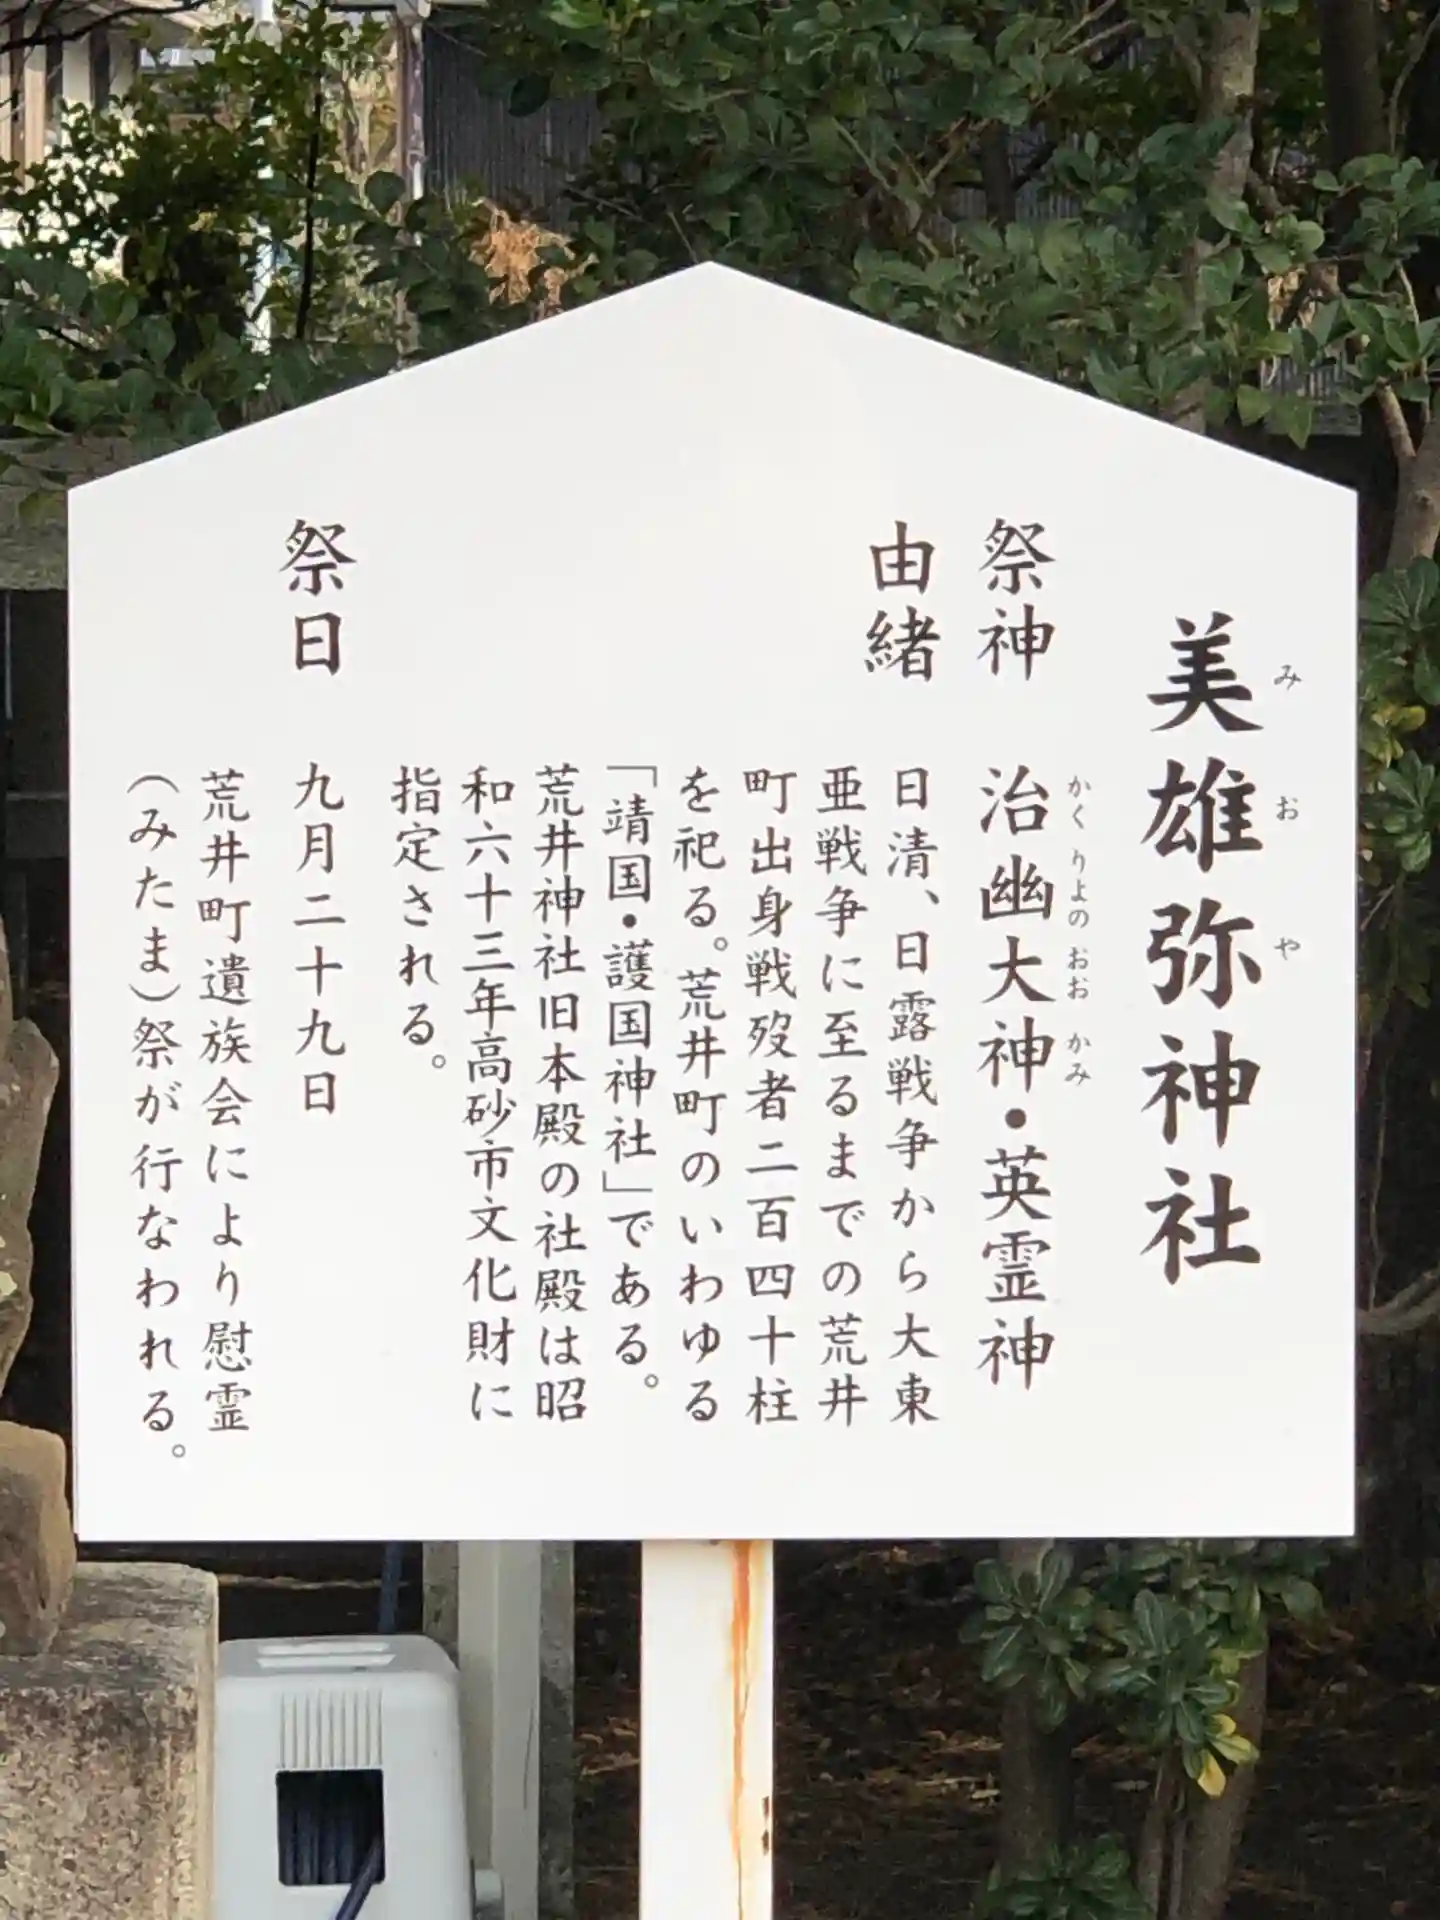 美雄弥神社
みおや
祭神 治幽大神・英霊神
かくりよのおおかみ
由緒 日清、日露戦争から大東
亜戦争に至るまでの荒井
町出身戦歿者二百四十柱
を祀る。荒井町のいわゆる
「靖国・護国神社」である。
荒井神社旧本殿の社殿は昭
和六十三年高砂市文化財に
指定される。
祭日 九月二十九日
荒井町遺族会により慰霊
（みたま）祭が行なわれる。